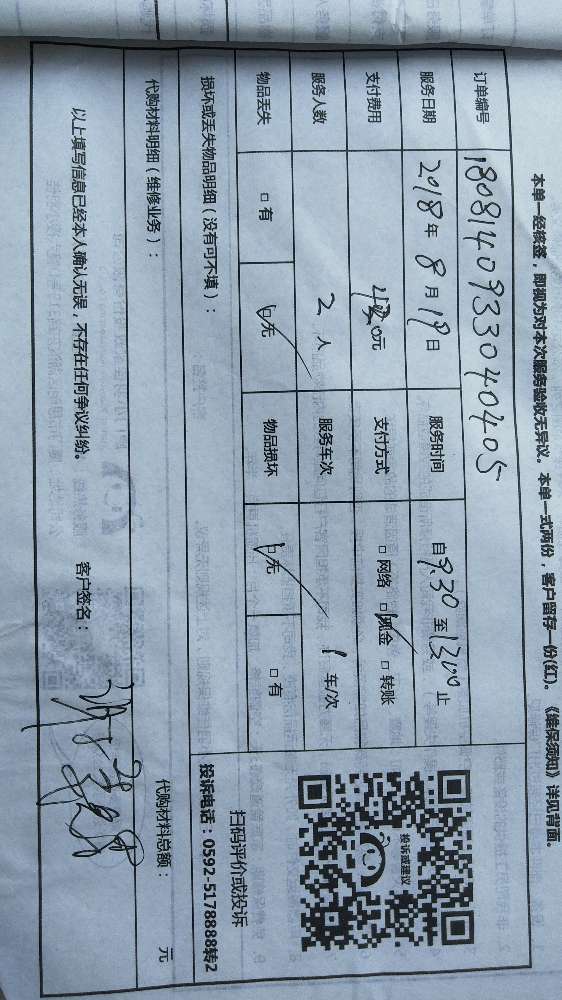 本单一经核签，即视为对本次服务验收无异议。本单一式两份，客户留存一份(红)。《维保须知》详见背面。
订单编号 180814093304​0405
服务日期 2018 年 8 月 19 日 服务时间 自 9:30 至 1300 止
支付费用 元 支付方式 □ 网络 □ 现金 □ 转账
服务人数 2 人 服务车次 1 车/次
物品丢失 □ 有 □ 无 物品损坏 □ 无 □ 有
损坏或丢失物品明细（没有可不填）：
投诉或建议
扫码评价或投诉
投诉电话：0592-5178888转2
代购材料明细（维修业务）： 代购材料总额： 元
以上填写信息已经本人确认无误，不存在任何争议纠纷。 客户签名：